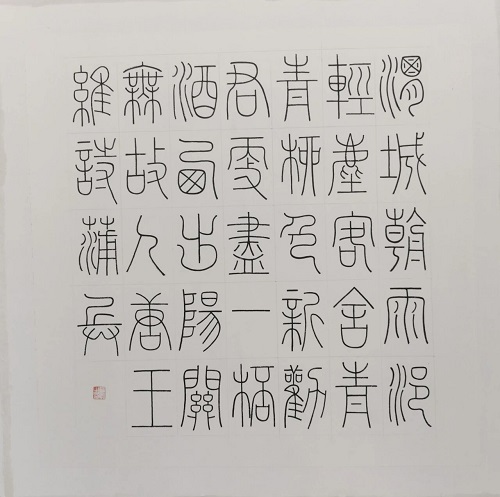 渭城朝雨浥
輕塵客舍青
青柳色新勸
君更盡一桮
酒西出陽關
無故人唐王
維詩蒲兵